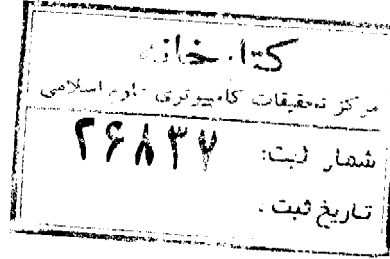 کتابخانه
مرکز تحقیقات کامپیوتری علوم اسلامی
شماره ثبت: ۲۶۸۳۷
تاریخ ثبت: